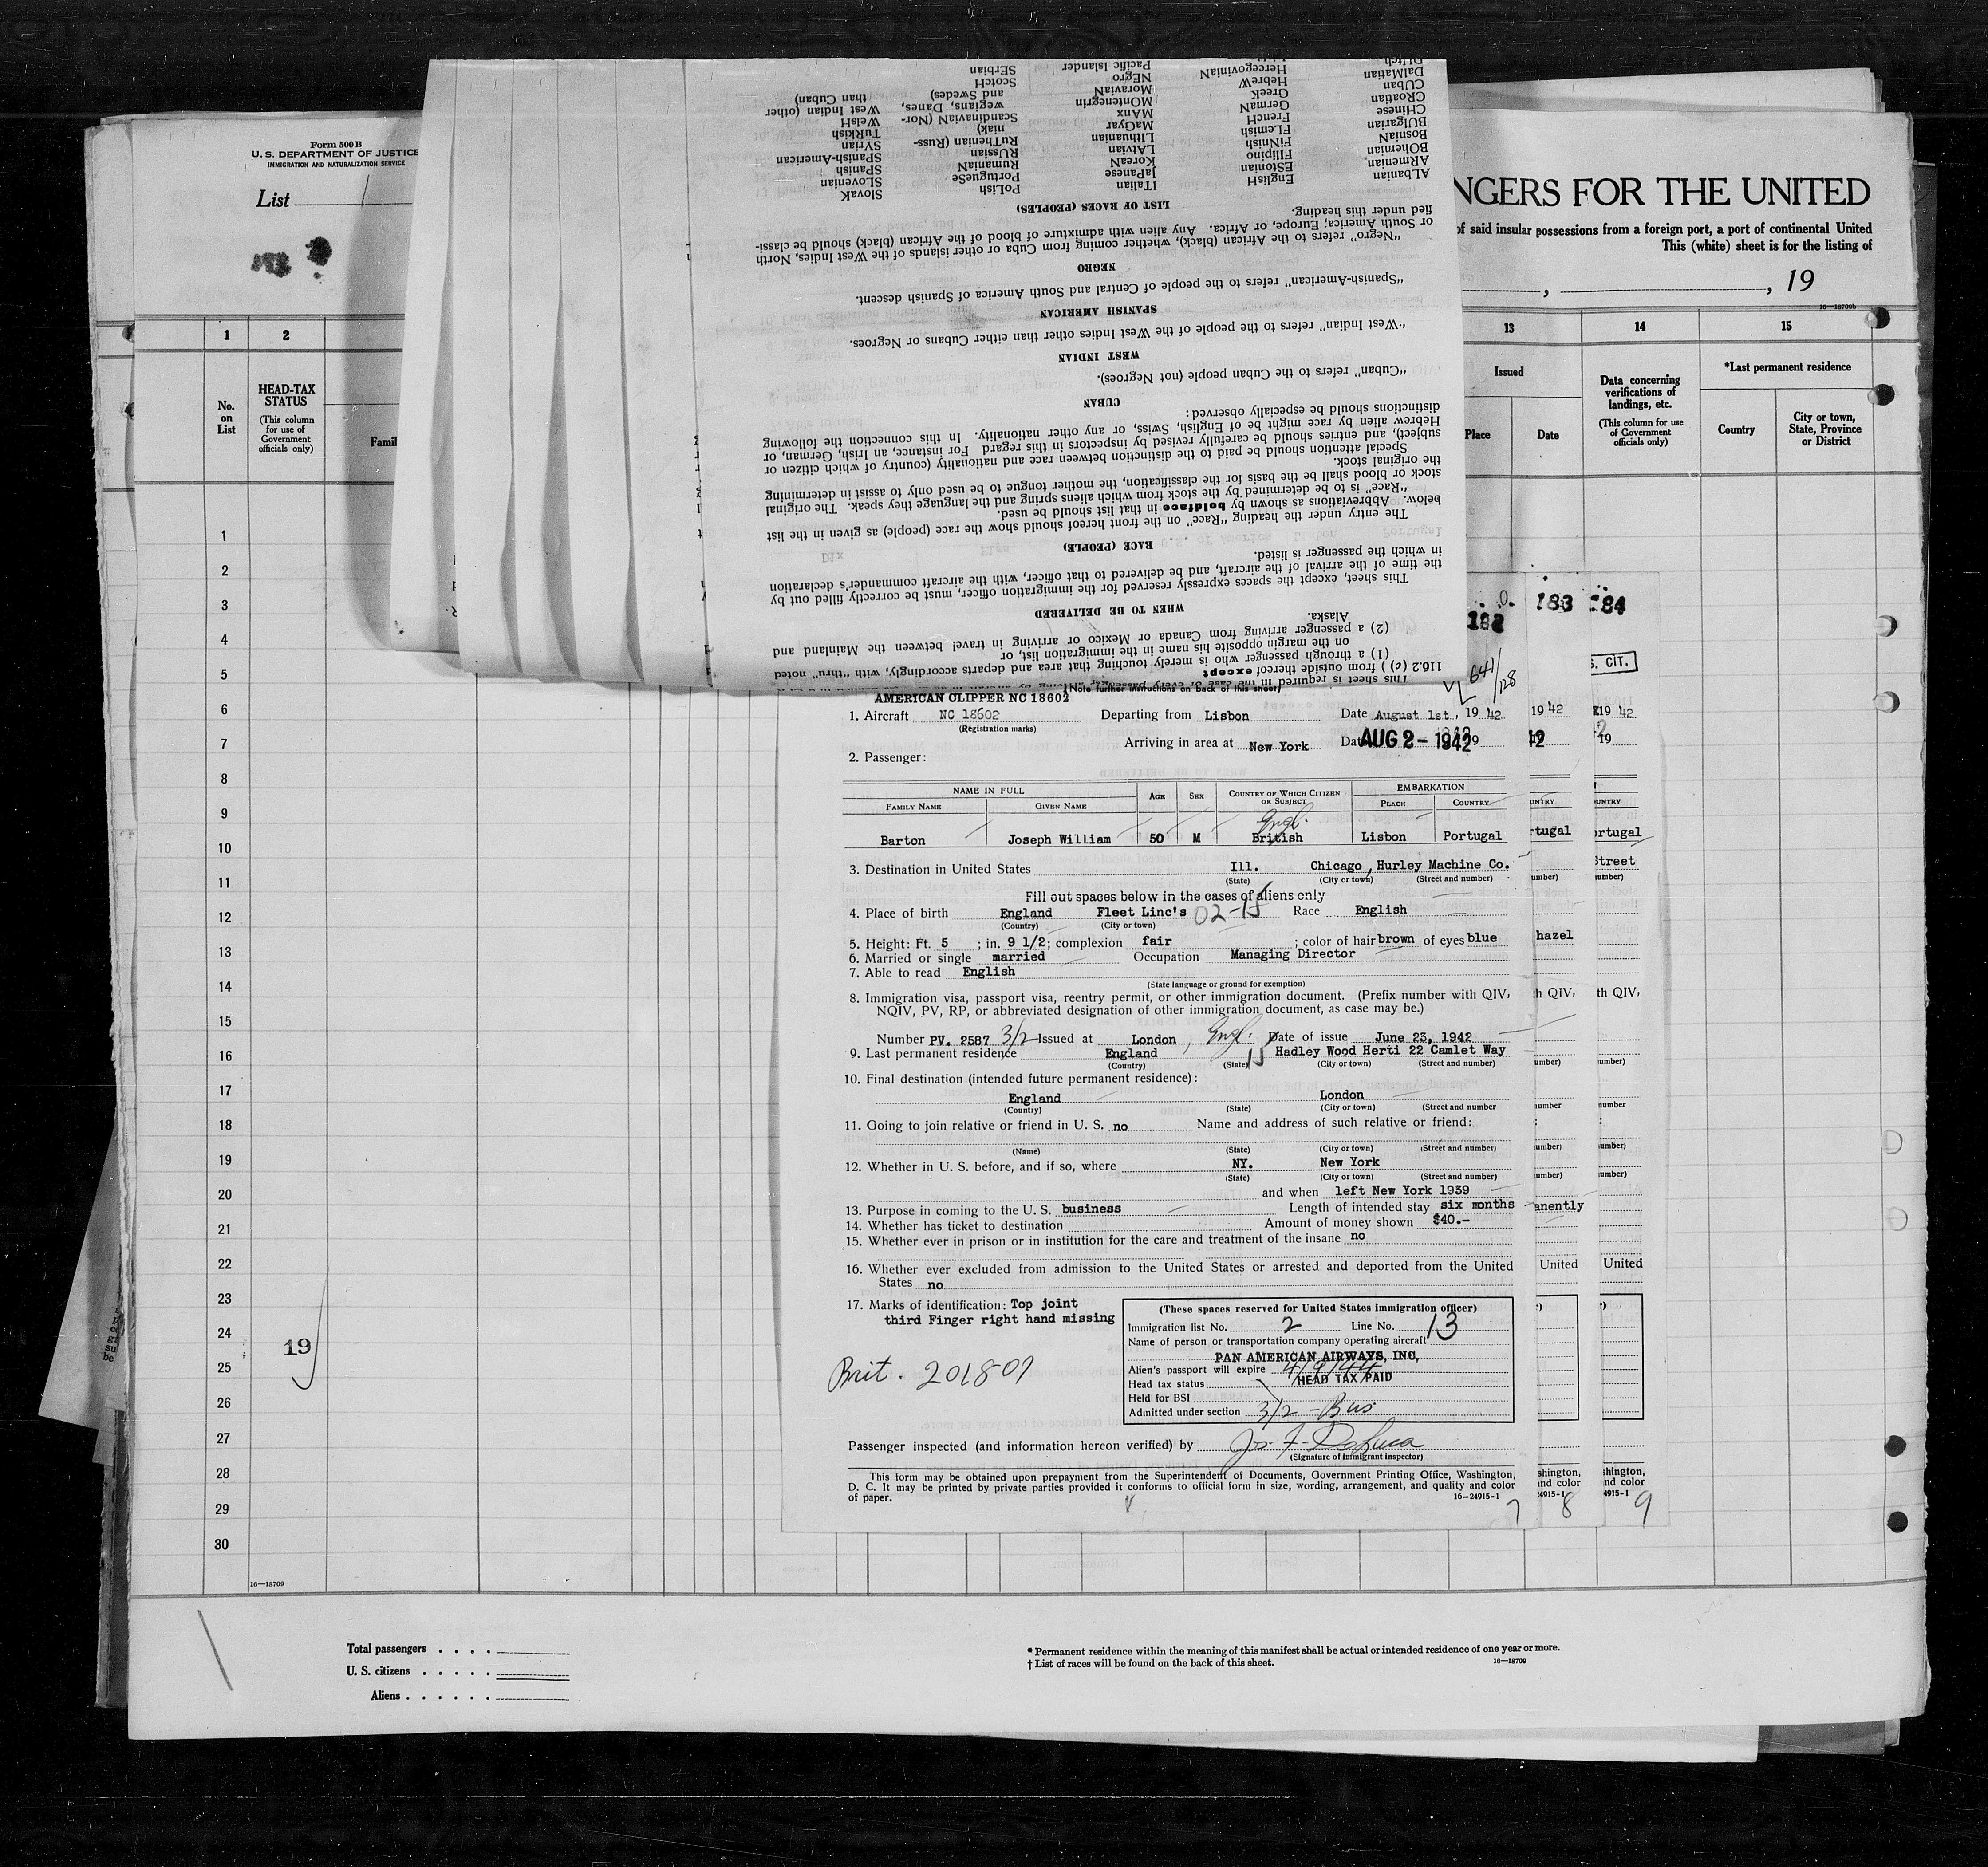 Form 500 B
U. S. DEPARTMENT OF JUSTICE
IMMIGRATION AND NATURALIZATION SERVICE
List
NGERS FOR THE UNITED
of said insular possessions from a foreign port, a port of continental United
This (white) sheet is for the listing of
, , 19
16—18709b
1 2
No. on List
HEAD-TAX STATUS
(This column for use of Government officials only)
Famil
13 14 15
Issued
Place Date
Data concerning verifications of landings, etc.
(This column for use of Government officials only)
*Last permanent residence
Country
City or town, State, Province or District
1
2
3
4
5
6
7
8
9
10
11
12
13
14
15
16
17
18
19
20
21
22
23
24
25
26
27
28
29
30
19
16—18709
Total passengers . . . .
U. S. citizens . . . . .
Aliens . . . . . .
* Permanent residence within the meaning of this manifest shall be actual or intended residence of one year or more.
† List of races will be found on the back of this sheet.
16—18709
116.2 (c) ) from outside thereof except
(1) a through passenger who is merely touching that area and departs accordingly, with "thru" noted
on the margin opposite his name in the immigration list, or
(2) a passenger arriving from Canada or Mexico or arriving in travel between the Mainland and
Alaska.
WHEN TO BE DELIVERED
This sheet, except the spaces expressly reserved for the immigration officer, must be correctly filled out by
the time of the arrival of the aircraft, and be delivered to that officer, with the aircraft commander's declaration
in which the passenger is listed.
RACE (PEOPLE)
The entry under the heading "Race" on the front hereof should show the race (people) as given in the list
below. Abbreviations as shown by boldface in that list should be used.
"Race" is to be determined by the stock from which aliens spring and the language they speak. The original
stock or blood shall be the basis for the classification, the mother tongue to be used only to assist in determining
the original stock.
Special attention should be paid to the distinction between race and nationality (country of which citizen or
subject), and entries should be carefully revised by inspectors in this regard For instance, an Irish, German, or
Hebrew alien by race might be of English, Swiss, or any other nationality. In this connection the following
distinctions should be especially observed:
CUBAN
"Cuban" refers to the Cuban people (not Negroes).
WEST INDIAN
"West Indian" refers to the people of the West Indies other than either Cubans or Negroes.
SPANISH AMERICAN
"Spanish-American" refers to the people of Central and South America of Spanish descent.
NEGRO
"Negro" refers to the African (black), whether coming from Cuba or other islands of the West Indies, North
or South America; Europe, or Africa. Any alien with admixture of blood of the African (black) should be classi-
fied under this heading.
LIST OF RACES (PEOPLES)
ALbanian EnglisH ITalian PoLish SlovaK
ARmenian EStonian JaPanese PortugueSe SLovenian
BOhemian FIlipino KoreaN RumaniaN SPanisH
BosniaN FiNnish LAtvian RUssian SPanish-American
BUlgarian FLemish LIthuanian RuThenian (Russ- SYrian
CHinese FrencH MaGyar niak) TuRKish
CRoatian GermaN MAnx ScandinaviaN (Nor- WelsH
CUban GreeK MOntenegrin wegians, Danes, West Indian (other
DalMatian HebreW MoraviaN and Swedes) than Cuban)
HercegovinaN NEgro ScotcH
Pacific Islander SErbian
182 183 184
641/128
S. CIT.
(Note further instructions on back of this sheet)
AMERICAN CLIPPER NC 18602
1. Aircraft NC 18602 Departing from Lisbon Date August 1st, 19 42
(Registration marks)
Arriving in area at New York Date AUG 2 - 1942 19
2. Passenger:
NAME IN FULL AGE SEX COUNTRY OF WHICH CITIZEN OR SUBJECT EMBARKATION
FAMILY NAME GIVEN NAME PLACE COUNTRY
Engl.
Barton Joseph William 50 M British Lisbon Portugal
3. Destination in United States Ill. Chicago, Hurley Machine Co.
(State) (City or town) (Street and number)
Fill out spaces below in the cases of aliens only
4. Place of birth England Fleet Linc's 02-15 Race English
(Country) (City or town)
5. Height: Ft. 5 ; in. 9 1/2; complexion fair ; color of hair brown of eyes blue
6. Married or single married Occupation Managing Director
7. Able to read English
(State language or ground for exemption)
8. Immigration visa, passport visa, reentry permit, or other immigration document. (Prefix number with QIV,
NQIV, PV, RP, or abbreviated designation of other immigration document, as case may be.)
Number PV. 2587 3/2 Issued at London, Engl. Date of issue June 23, 1942
9. Last permanent residence England 15 Hadley Wood Herti 22 Camlet Way
(Country) (State) (City or town) (Street and number)
10. Final destination (intended future permanent residence):
England London
(Country) (State) (City or town) (Street and number
11. Going to join relative or friend in U. S. no Name and address of such relative or friend:
(Name) (State) (City or town) (Street and number)
12. Whether in U. S. before, and if so, where NY. New York
(State) (City or town) (Street and number)
and when left New York 1939
13. Purpose in coming to the U. S. business Length of intended stay six months
14. Whether has ticket to destination Amount of money shown $40.-
15. Whether ever in prison or in institution for the care and treatment of the insane no
16. Whether ever excluded from admission to the United States or arrested and deported from the United
States no
17. Marks of identification: Top joint
third Finger right hand missing
(These spaces reserved for United States immigration officer)
Immigration list No. 2 Line No. 13
Name of person or transportation company operating aircraft
PAN AMERICAN AIRWAYS, INC,
Alien's passport will expire 4/9/44
Head tax status HEAD TAX PAID
Held for BSI
Admitted under section 3/2 - Bus
Brit. 201807
Passenger inspected (and information hereon verified) by Jos. F. DeLuca
(Signature of immigrant inspector)
This form may be obtained upon prepayment from the Superintendent of Documents, Government Printing Office, Washington,
D. C. It may be printed by private parties provided it conforms to official form in size, wording, arrangement, and quality and color
of paper.
16—24915-1
7 8 9
19 42 19 42
42 19
rtugal ortugal
Street
hazel
th QIV, th QIV,
anently
United United
shington, shington,
and color nd color
4915-1 4915-1